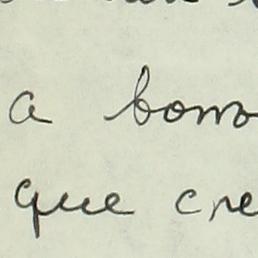 a bom
que cre